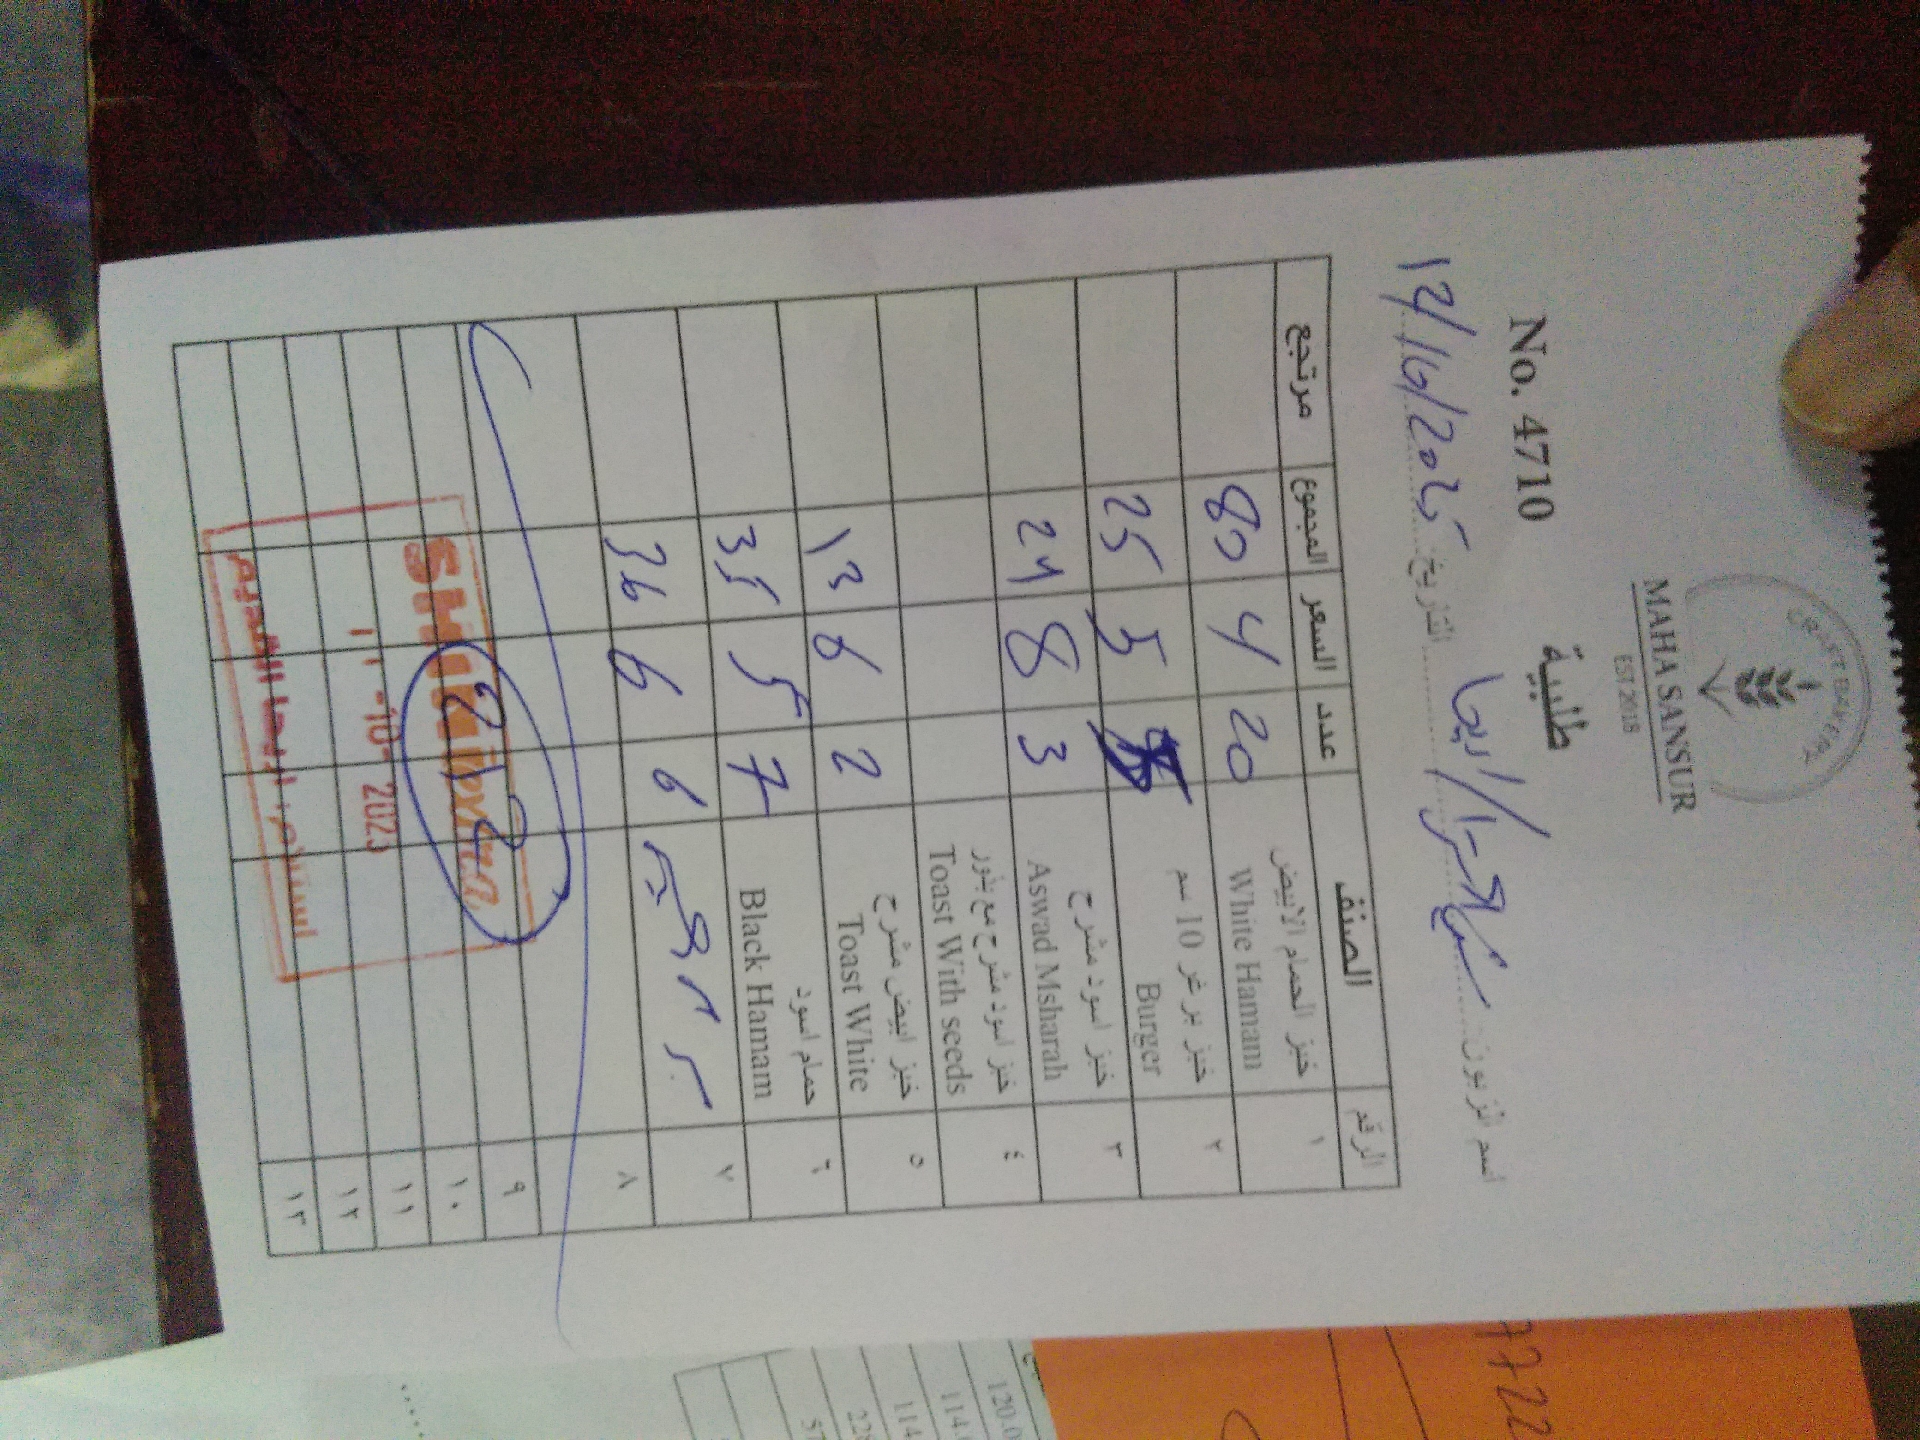 CRAFT BAKERY
MAHA SANSUR
EST 2018
طلبية
No. 4710
اسم الزبون: التاريخ:
الرقم الصنف عدد السعر المجموع مرتجع
١ خبز الحمام الابيض White Hamam 20 4 80
٢ خبز برغر 10 سم Burger 5 25
٣ خبز اسود مشرح Aswad Msharah 3 8 24
٤ خبز اسود مشرح مع بذور Toast With seeds
٥ خبز ابيض مشرح Toast White 2 6
٦ حمام اسود Black Hamam 7 5 35
٧ 6 6 36
٨
٩
١٠
١١
١٢
١٣
212
استلام: اريحا القديم
120.0
114.
114
228
57